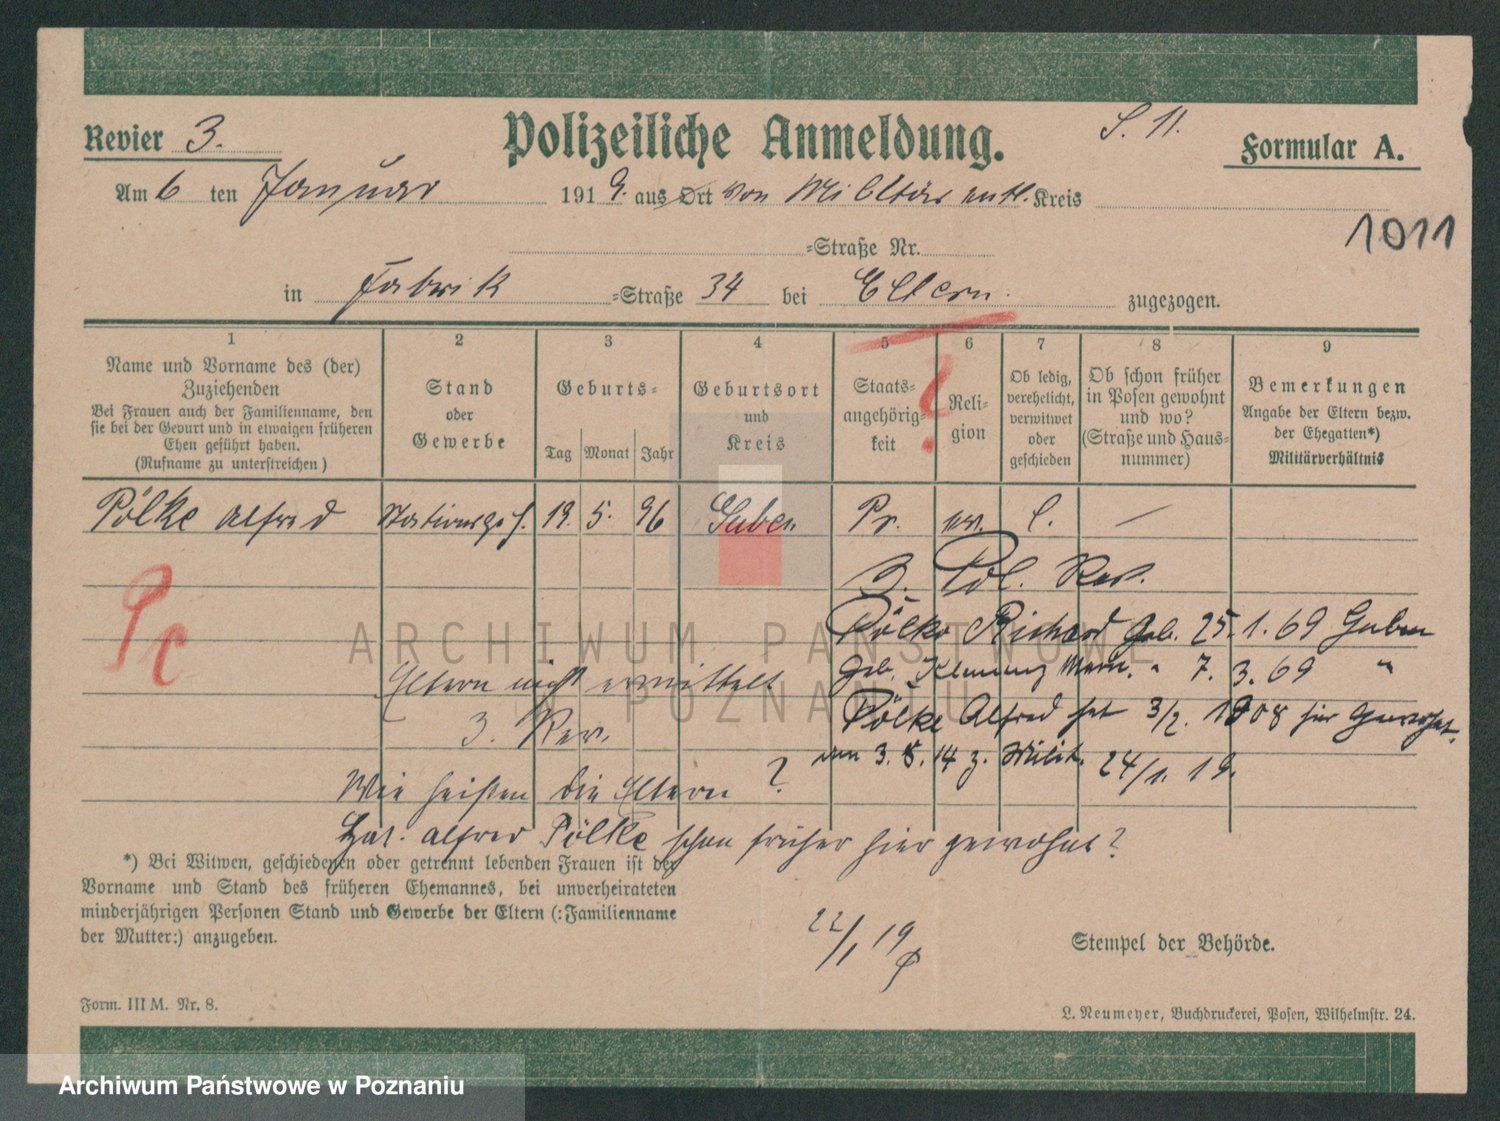 Revier 3.
Polizeiliche Anmeldung.
S. 11.
Formular A.
Am 6 ten Januar 1919. aus Ort von Militär entl. Kreis
1011
=Straße Nr.
in Fabrik =Straße 34 bei Eltern. zugezogen.
1
Name und Vorname des (der)
Zuziehenden
Bei Frauen auch der Familienname, den
sie bei der Geburt und in etwaigen früheren
Ehen geführt haben.
(Rufname zu unterstreichen)
2
Stand
oder
Gewerbe
3
Geburts=
Tag Monat Jahr
4
Geburtsort
und
Kreis
5
Staats=
angehörig=
keit
6
Reli=
gion
7
Ob ledig,
verehelicht,
verwitwet
oder
geschieden
8
Ob schon früher
in Posen gewohnt
und wo?
(Straße und Haus=
nummer)
9
Bemerkungen
Angabe der Eltern bezw.
der Ehegatten*)
Militärverhältnis
?
Pölke Alfred 19. 5. 96 Guben Pr. ev. l. —
3. Pol. Rev.
Pölke Richard geb. 25.1.69 Guben
geb. 7. 3. 69 "
Pölke Alfred hat 3/2. 1908 hier gewohnt.
3. 5. 14 z. Militär. 24/1. 19.
Eltern nicht ermittelt
3. Rev.
Wie heißen die Eltern ?
Hat Alfred Pölke schon früher hier gewohnt?
22/1 19
*) Bei Witwen, geschiedenen oder getrennt lebenden Frauen ist der
Vorname und Stand des früheren Ehemannes, bei unverheirateten
minderjährigen Personen Stand und Gewerbe der Eltern (:Familienname
der Mutter:) anzugeben.
Stempel der Behörde.
Form. III M. Nr. 8.
L. Neumeyer, Buchdruckerei, Posen, Wilhelmstr. 24.
ARCHIWUM PAŃSTWOWE
W POZNANIU
Archiwum Państwowe w Poznaniu